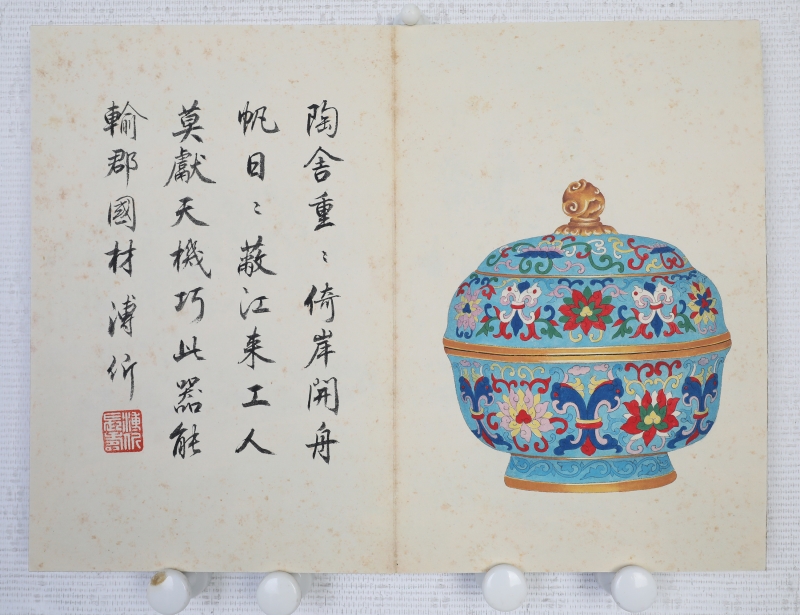 陶舍重〻倚岸開舟
帆日〻蔽江来工人
莫獻天機巧此器能
輸郡國材 溥伒
溥伒長壽